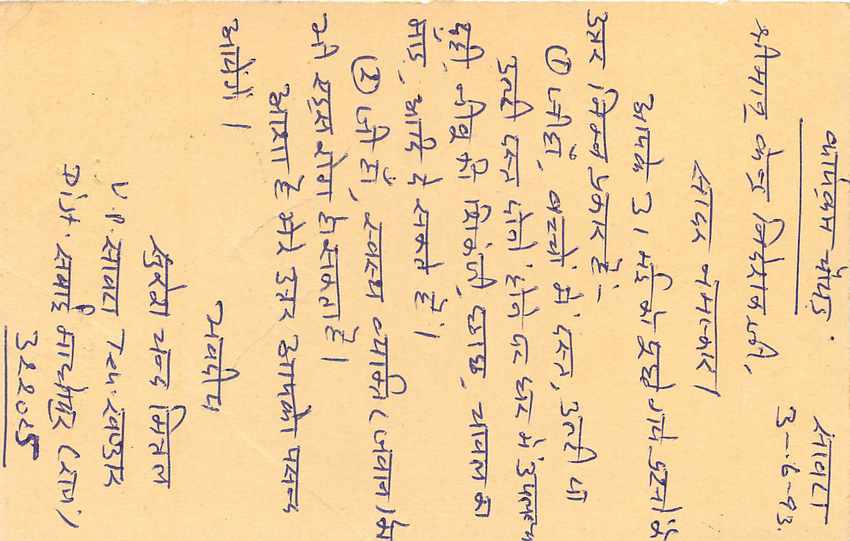 कार्यक्रम चौपाल
सावटा
3-6-93.
श्रीमान् केन्द्र निदेशक जी,
सादर नमस्कार।
आपके 31 मई को पूछे गये प्रश्नों के
उत्तर निम्न प्रकार हैं:-
① जी हाँ, बच्चों में दस्त, उल्टी या
उल्टी दस्त दोनों होने पर घर में उपलब्ध
दही, नीबू की शिकंजी, छाछ, चावल का
माड, आदि दे सकते हैं।
② जी हाँ, स्वस्थ व्यक्ति (जवान) को
भी एड्स रोग हो सकता है।
आशा है मेरे उत्तर आपको पसन्द
आयेंगे।
भवदीय
सुरेश चन्द मित्तल
V.P. सावटा Teh. खण्डार
Dist. सवाई माधोपुर (राज)
322025